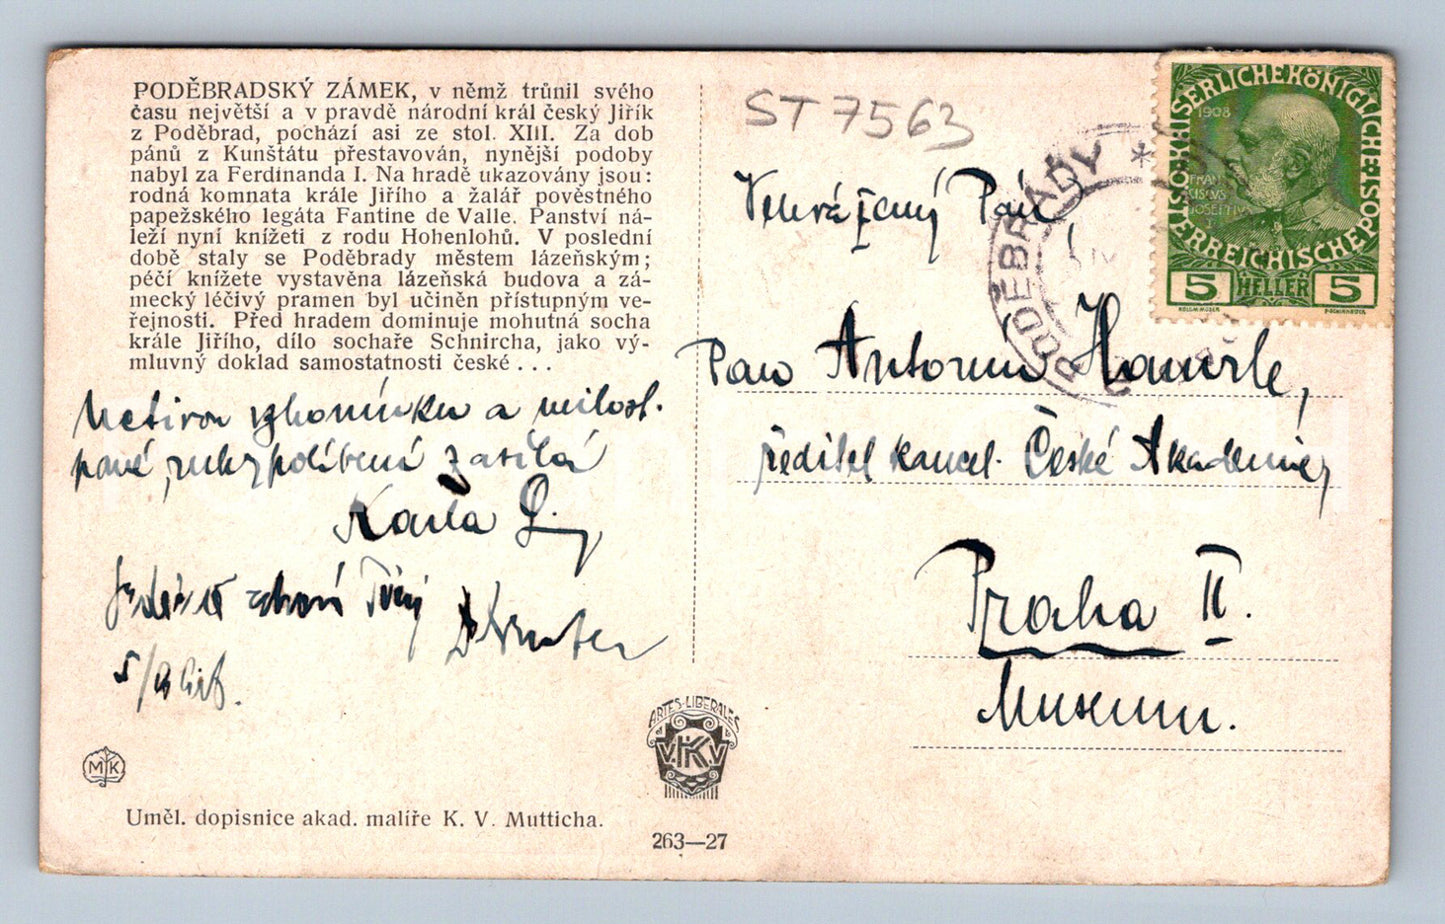 PODĚBRADSKÝ ZÁMEK, v němž trůnil svého
času největší a v pravdě národní král český Jiřík
z Poděbrad, pochází asi ze stol. XIII. Za dob
pánů z Kunštátu přestavován, nynější podoby
nabyl za Ferdinanda I. Na hradě ukazovány jsou:
rodná komnata krále Jiřího a žalář pověstného
papežského legáta Fantine de Valle. Panství ná-
leží nyní knížeti z rodu Hohenlohů. V poslední
době staly se Poděbrady městem lázeňským;
péčí knížete vystavěna lázeňská budova a zá-
mecký léčivý pramen byl učiněn přístupným ve-
řejnosti. Před hradem dominuje mohutná socha
krále Jiřího, dílo sochaře Schnircha, jako vý-
mluvný doklad samostatnosti české...
a milost.
pané, rukypolíbení zasílá
Karla
Tvůj
5/
MK
Uměl. dopisnice akad. malíře K. V. Mutticha.
ARTES LIBERALES
V.K.V
263—27
ST 7563
Velevážený Pán
Pan Antonín
ředitel kancel. České Akademie,
Praha II.
Museum.
PODĚBRADY
KAISERLICHE KÖNIGLICHE
ÖSTERREICHISCHE POST
1908
FRAN
CISCVS
IOSEPHVS
5 HELLER 5